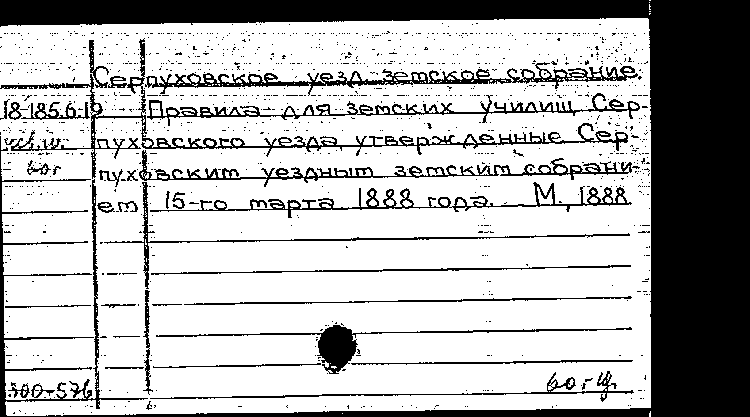 Серпуховское уезд. земское собрание.
18.185.6.19 Правила для земских училищ Сер-
пуховского уезда, утвержденные Сер-
пуховским уездным земским собрани-
ем 15-го марта 1888 года. М., 1888
500-576